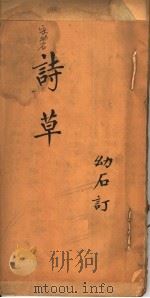 詩草
幼石訂